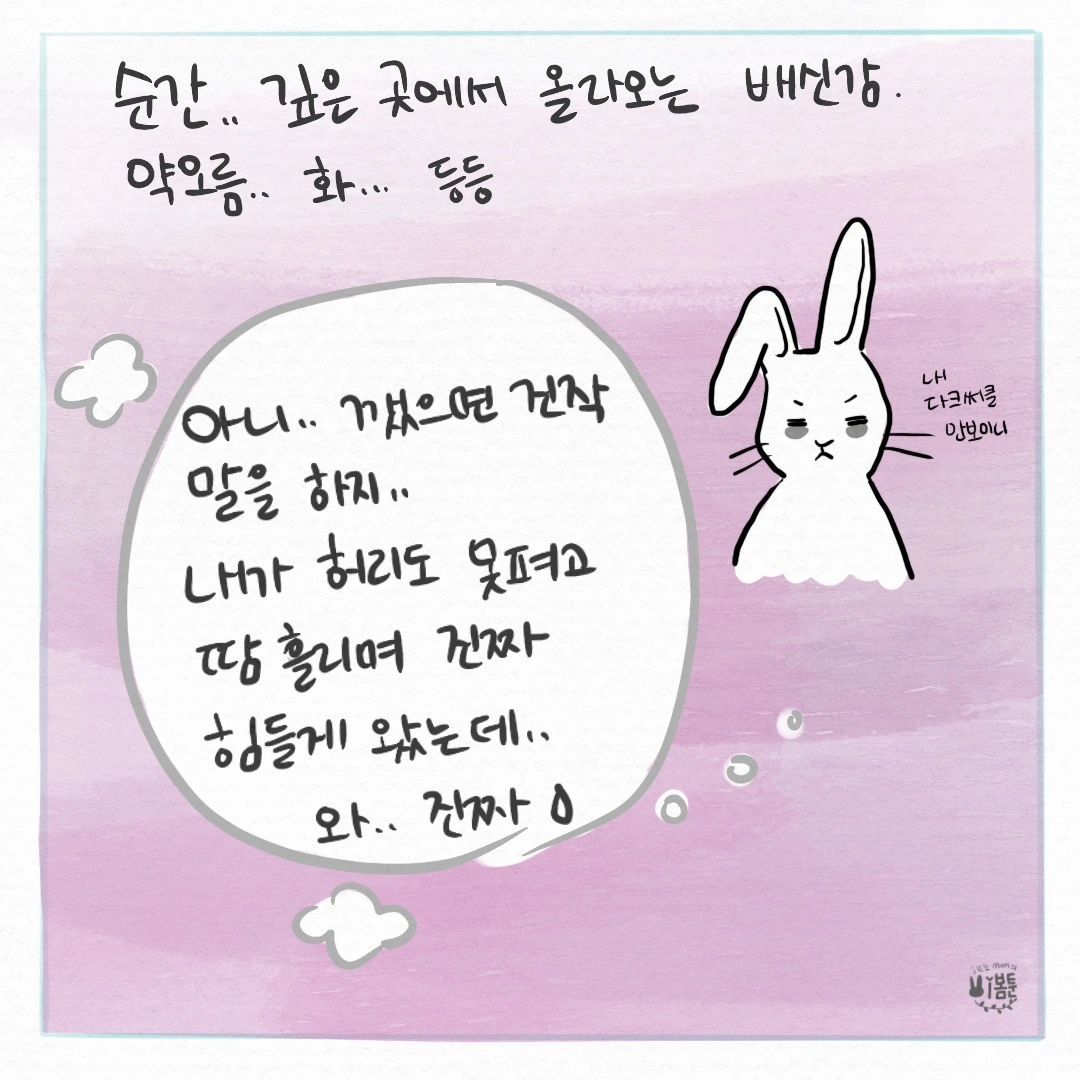 순간.. 깊은 곳에서 올라오는 배신감.
약오름.. 화... 등등
내
다크써클
안보이니
아니.. 깼으면 진작
말을 하지..
내가 허리도 못펴고
땀 흘리며 진짜
힘들게 왔는데..
와.. 진짜
봄툰